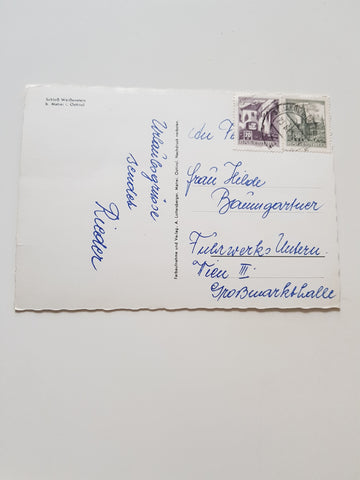 Schloß Weißenstein
b. Matrei i. Osttirol
Urlaubsgrüsse
sendet
Rieder
Farbaufnahme und Verlag: A. Lottersberger, Matrei, Osttirol. Nachdruck verboten.
An
Frau Hilde
Baumgartner
Fuhrwerks Untern.
Wien III.
Großmarkthalle